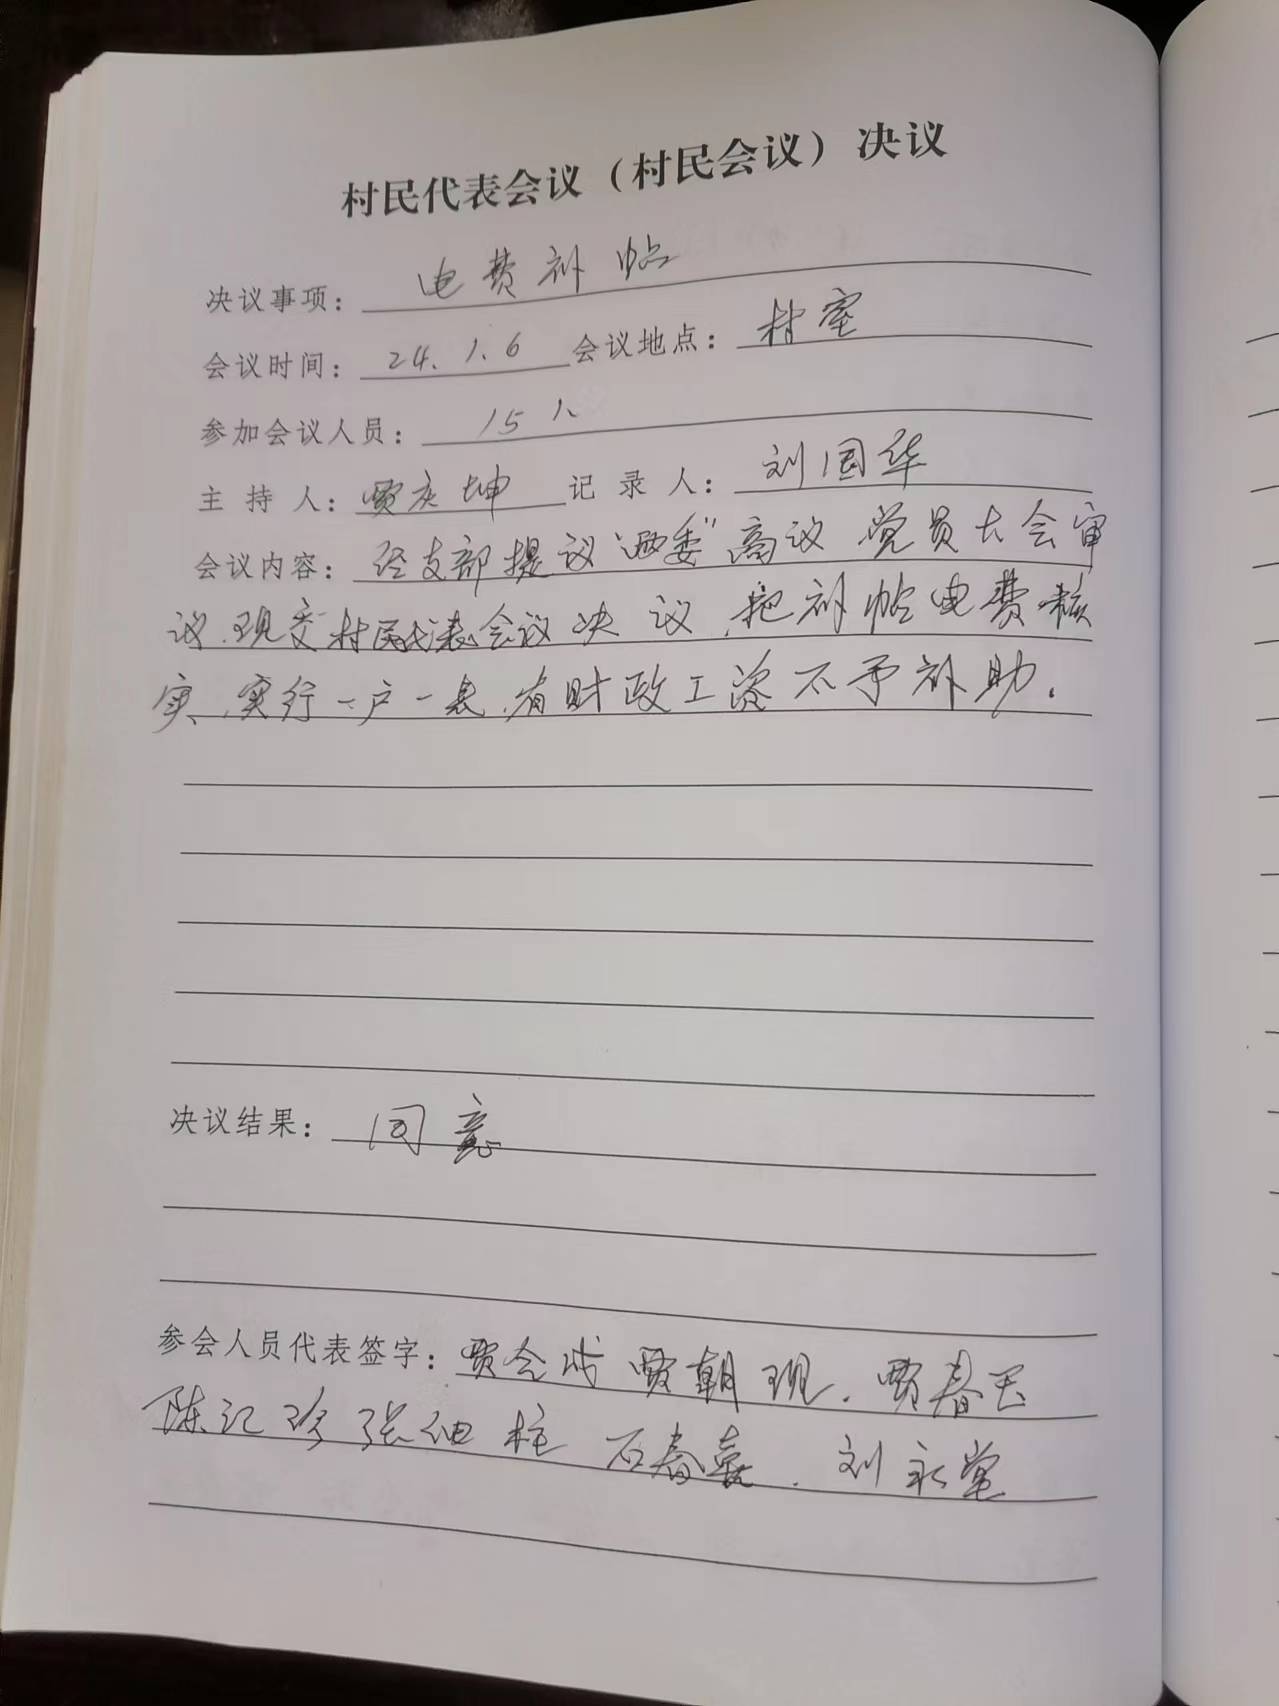 村民代表会议（村民会议）决议
决议事项： 电费补帖
会议时间： 24.1.6 会议地点： 村室
参加会议人员： 15人
主持人： 贾庆坤 记录人： 刘国华
会议内容： 经支部提议"两委"商议 党员大会审
议.现交村民代表会议决议,把补帖电费核
实,实行一户一表,有财政工资不予补助.
决议结果： 同意
参会人员代表签字： 贾会 贾朝现. 贾春
陈记珍 张 柱 石春喜. 刘永堂